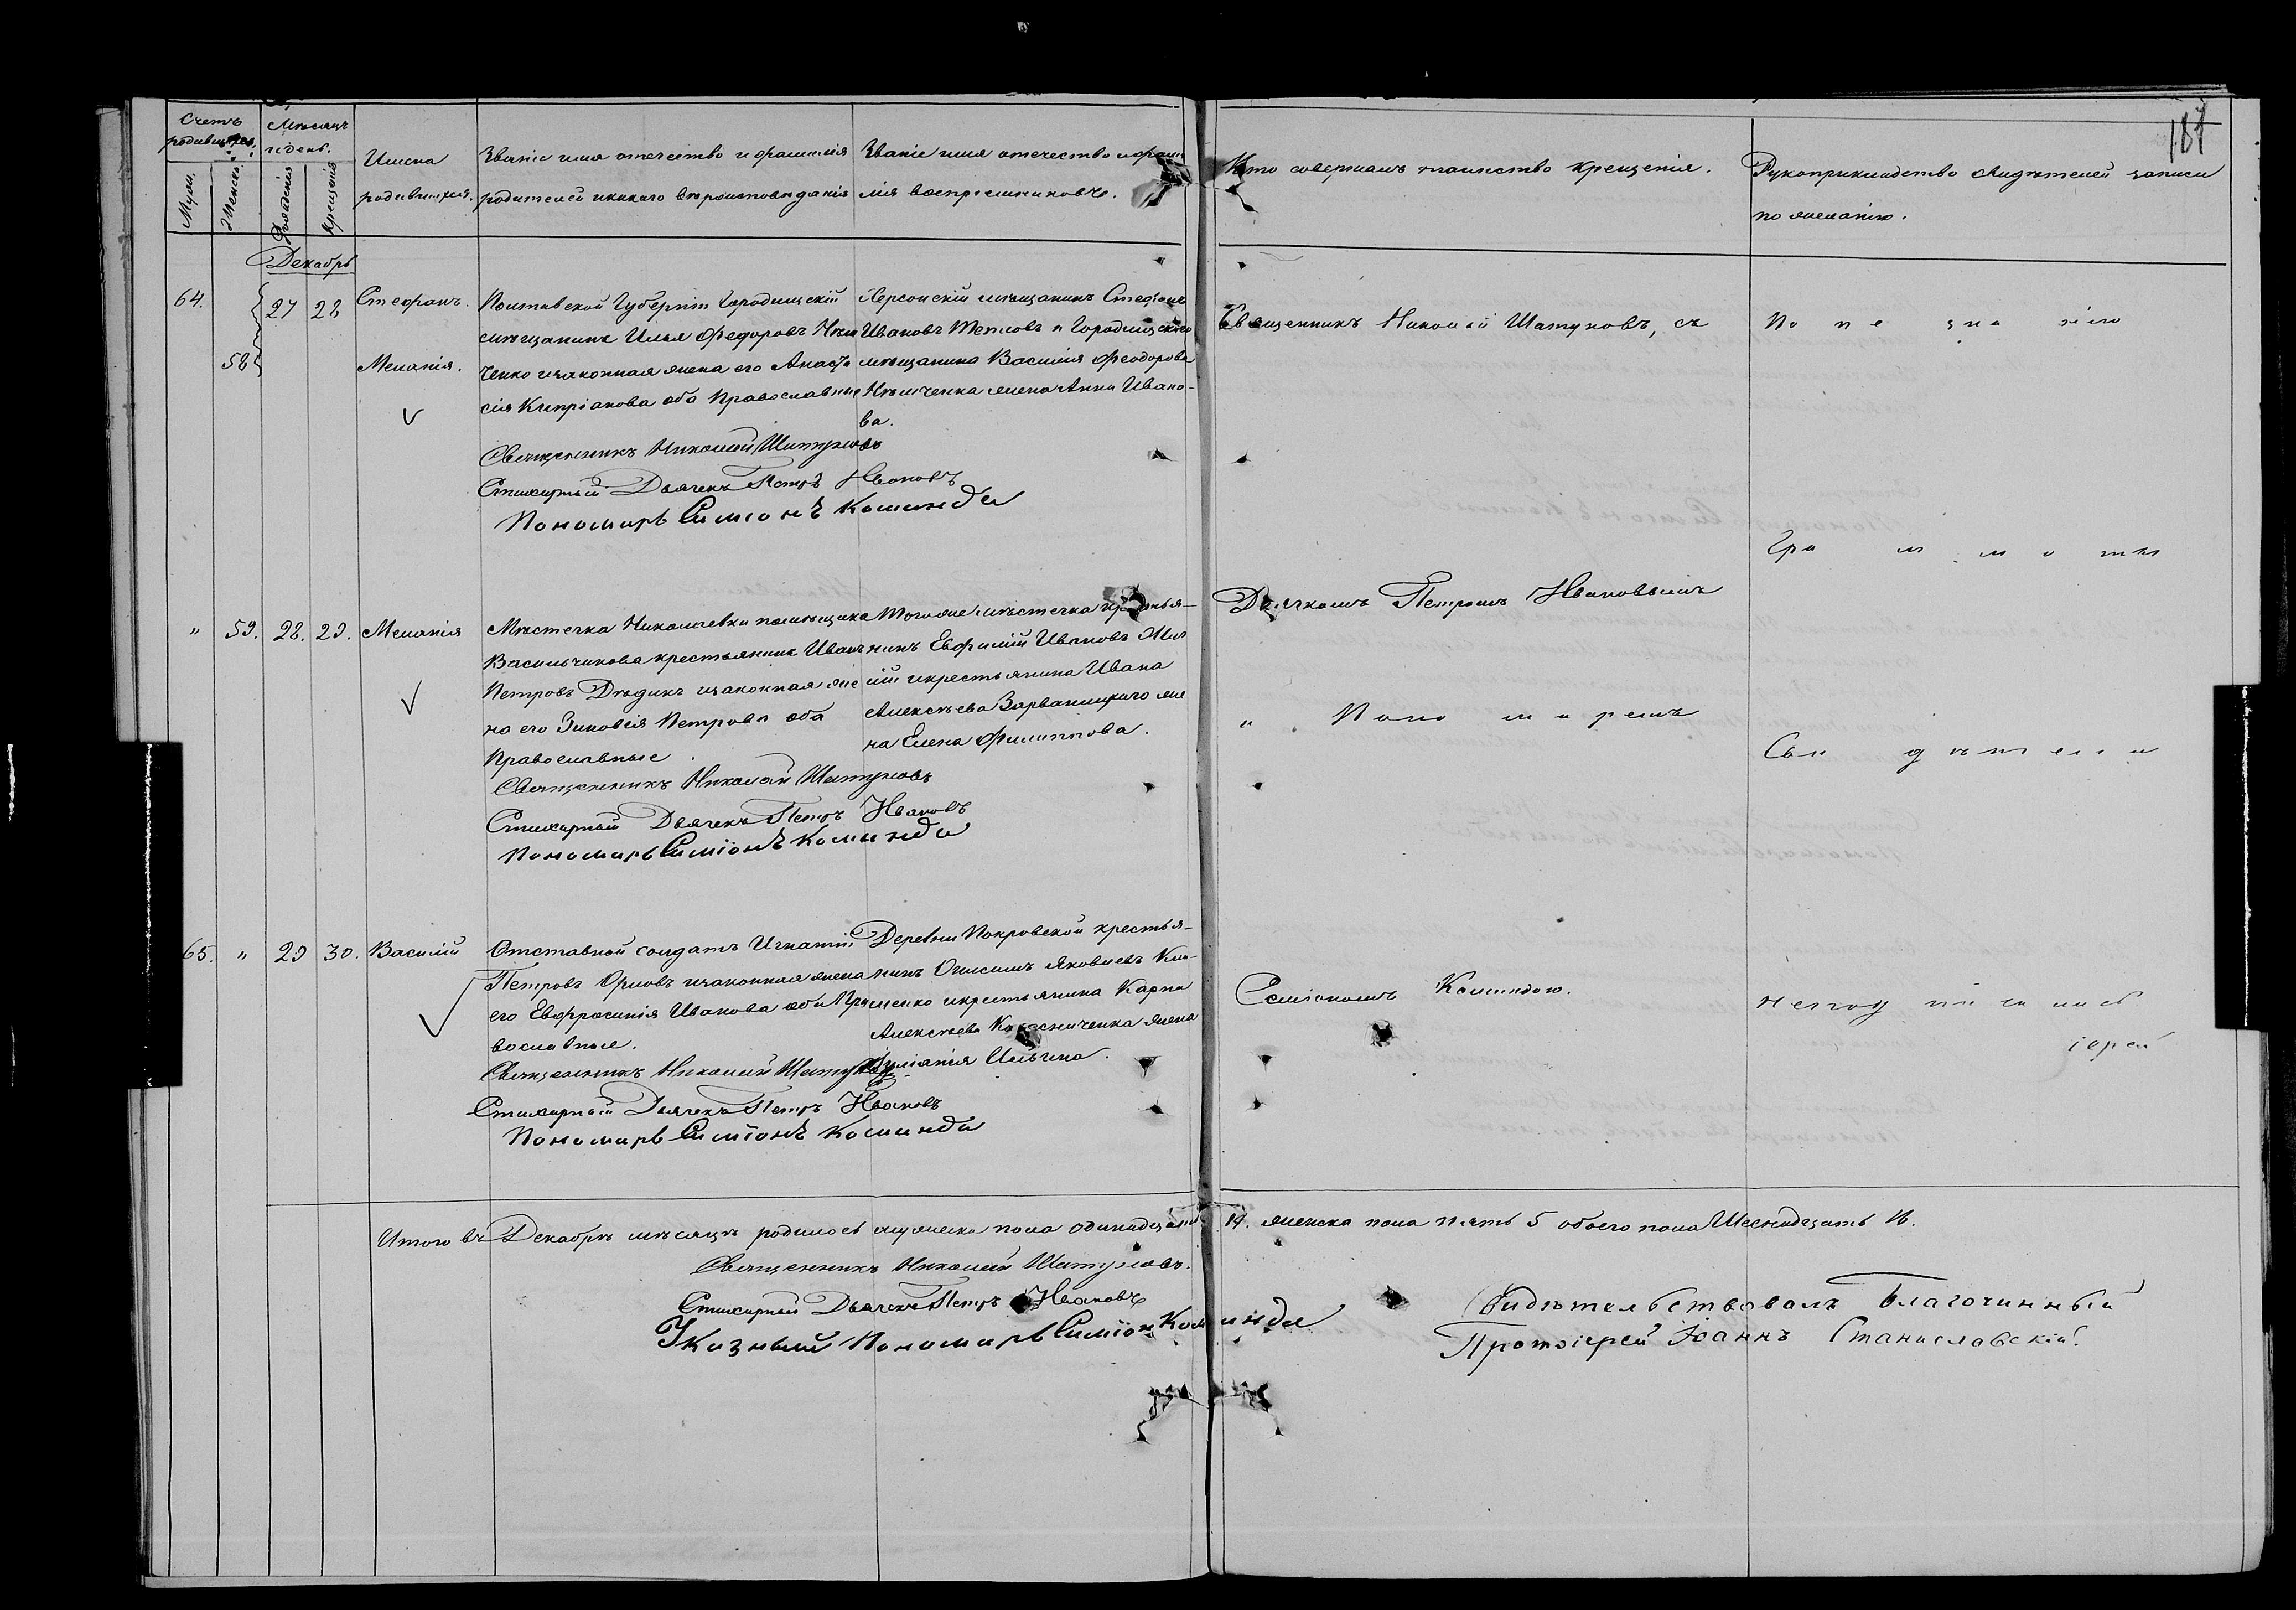 187
Счетъ
родившихся.
Мѣсяцъ
и день.
Муж.
Женска.
Рожденія
Крещенія
Имена
родившихся.
Званіе имя отечество и фамилія
родителей и какаго вѣроисповѣданія
Званіе имя отечество и фами
лія воспріемниковъ.
Кто совершалъ таинство крещенія.
Рукоприкладство свидѣтелей записи
по желанію.
Декабрь
64. 27 28 Стефанъ.
58 Меланія.
Полтавской Губерніи Городищскій
мѣщанинъ Илья Федоровъ
ченко и законная жена его Анаста
сія Кипріанова оба Православные
Священникъ Николай Шатуновъ
Стихарный Дьячекъ Петръ Ивановъ
Пономарь Симіонъ Коминда
Херсонскій мѣщанинъ Стефанъ
Ивановъ Тепловъ и Городищскаго
мѣщанина Василія Феодорова
жена Анна Ивано-
ва.
Священникъ Николай Шатуновъ, съ
По не зна нію
Гра м м о ты
" 59. 28. 29. Меланія
Мѣстечка Николаевки помѣщика
Васильчикова крестьянинъ Иванъ
Петровъ Дѣдикъ и законная же
на его Зиновія Петрова оба
Православные
Священникъ Николай Шатуновъ
Стихарный Дьячекъ Петръ Ивановъ
Пономарь Симіонъ Коминда
Тогоже мѣстечка крестья-
нинъ Евфимій Ивановъ
и крестьянина Ивана
Алексѣева Зарваницкаго же
на Елена Филиппова.
Дьячкомъ Петромъ Ивановымъ
" Поно м а ремъ
Сви дѣтели
65. " 29 30. Василій
Отставной солдатъ Игнатій
Петровъ Орловъ и законная жена
его Евфросинія Иванова оба Пра
вославные.
Священникъ Николай Шатуновъ
Стихарный Дьячекъ Петръ Ивановъ
Пономарь Симіонъ Коминда
Деревни Покровской крестья-
нинъ Онисимъ Яковлевъ Кли-
менко и крестьянина Карпа
Алексѣева Колесниченка жена
Іуліанія Ильина.
Семіономъ Коминдою.
Неподписались
іерей
Итого въ Декабрѣ мѣсяцѣ родилось мужеска пола одинадцать 11. женска пола пять 5 обоего пола Шеснадцать 16.
Священникъ Николай Шатуновъ.
Стихарный Дьячекъ Петръ Ивановъ
Указный Пономарь Симіон Коминда
Свидѣтельствовалъ Благочинный
Протоіерей Іоаннъ Станиславскій.